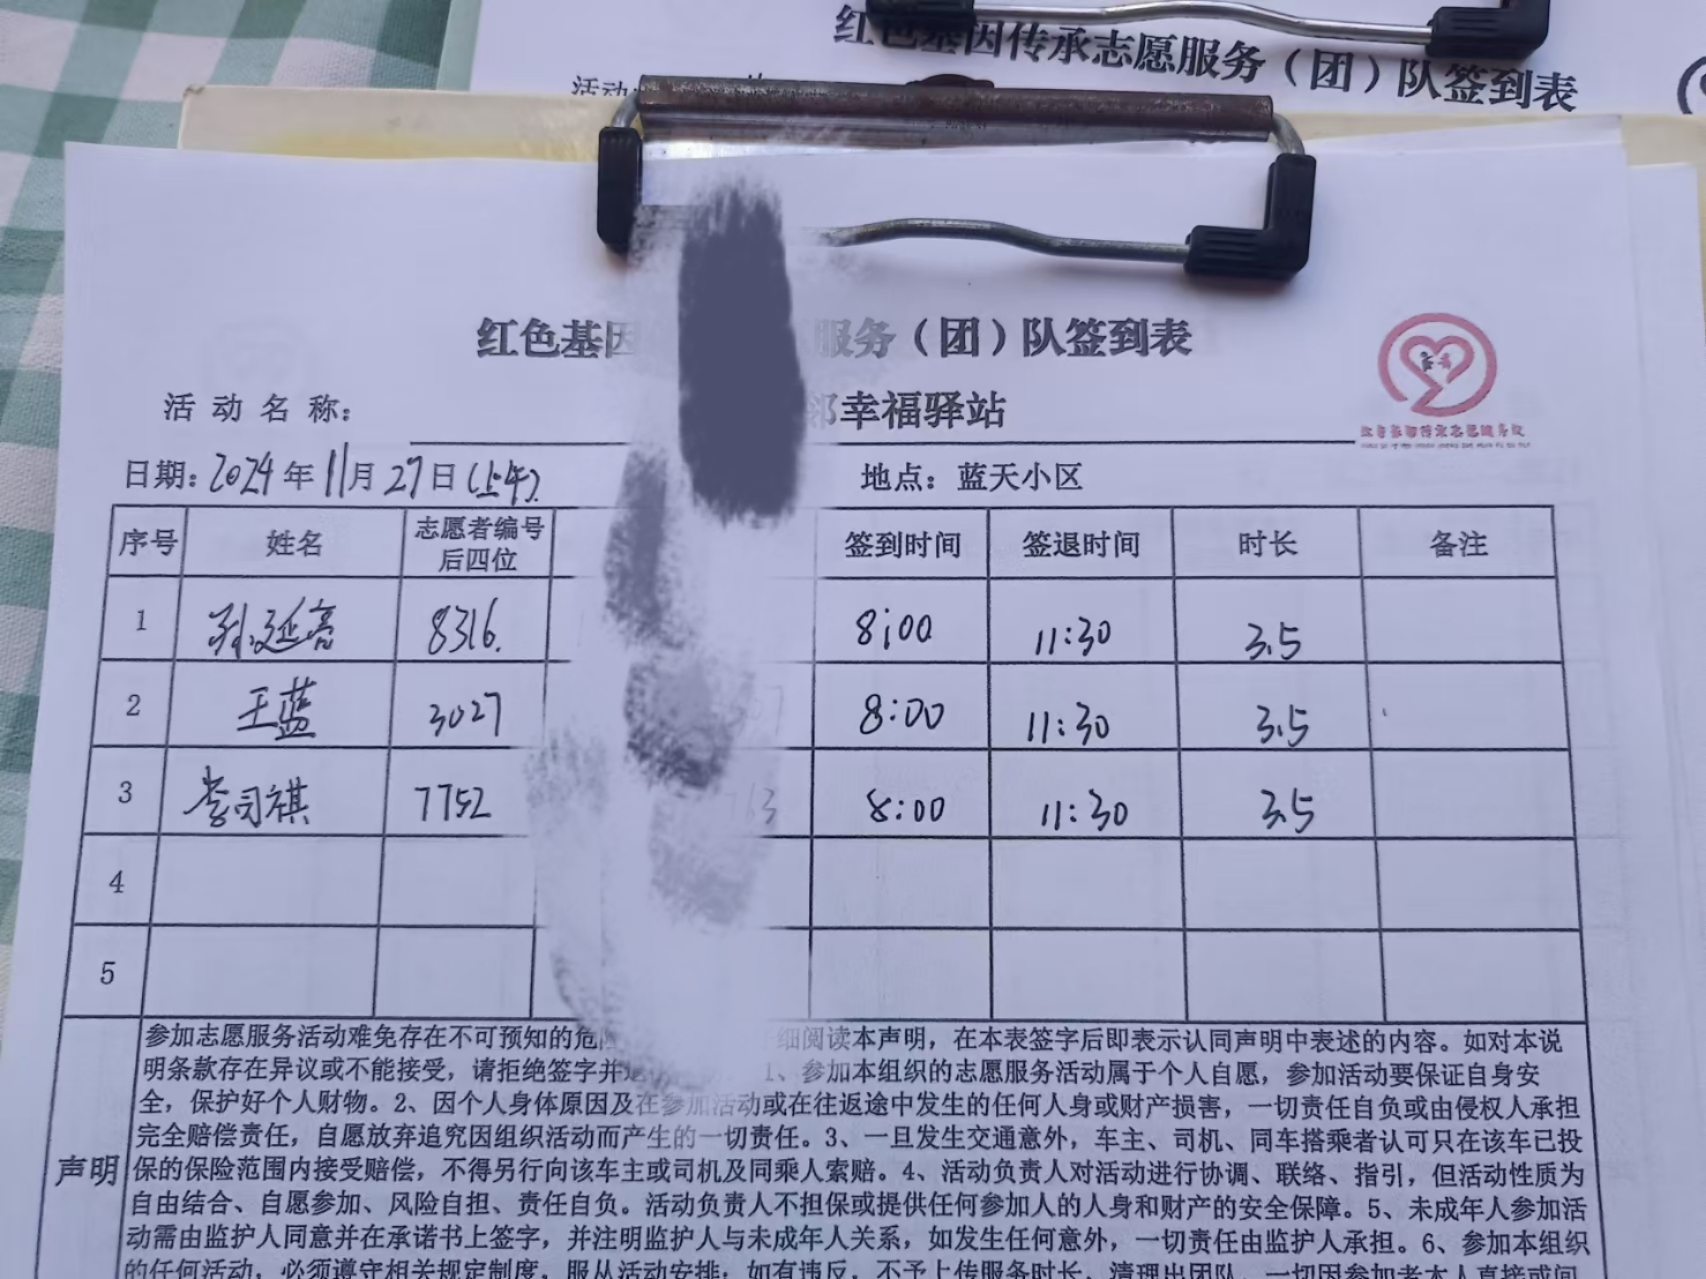 红色基因传承志愿服务（团）队签到表
活动
红色基因 服务（团）队签到表
活动名称： 邻幸福驿站
日期：2024年11月27日（上午） 地点：蓝天小区
序号 姓名 志愿者编号后四位 签到时间 签退时间 时长 备注
1 孙延亮 8316. 8:00 11:30 3.5
2 王蓝 3027 8:00 11:30 3.5
3 李司祺 7752 63 8:00 11:30 3.5
4
5
声明
参加志愿服务活动难免存在不可预知的危险 细阅读本声明，在本表签字后即表示认同声明中表述的内容。如对本说
明条款存在异议或不能接受，请拒绝签字并退 1、参加本组织的志愿服务活动属于个人自愿，参加活动要保证自身安
全，保护好个人财物。2、因个人身体原因及在参加活动或在往返途中发生的任何人身或财产损害，一切责任自负或由侵权人承担
完全赔偿责任，自愿放弃追究因组织活动而产生的一切责任。3、一旦发生交通意外，车主、司机、同车搭乘者认可只在该车已投
保的保险范围内接受赔偿，不得另行向该车主或司机及同乘人索赔。4、活动负责人对活动进行协调、联络、指引，但活动性质为
自由结合、自愿参加、风险自担、责任自负。活动负责人不担保或提供任何参加人的人身和财产的安全保障。5、未成年人参加活
动需由监护人同意并在承诺书上签字，并注明监护人与未成年人关系，如发生任何意外，一切责任由监护人承担。6、参加本组织
的任何活动，必须遵守相关规定制度，服从活动安排；如有违反，不予上传服务时长、清理出团队，一切因参加者本人直接或间